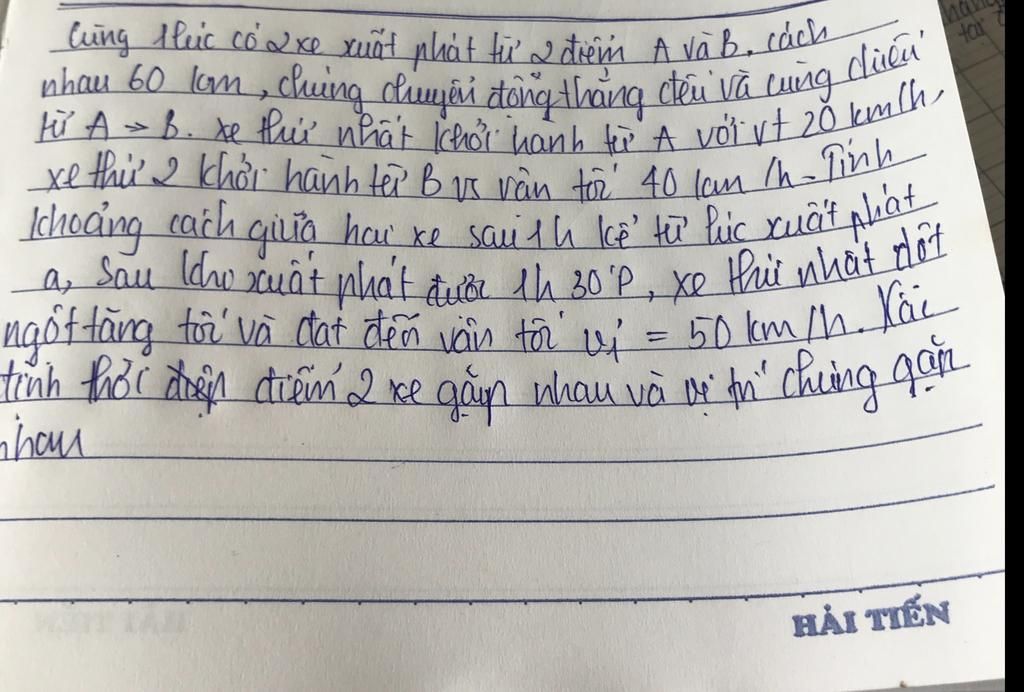 Cùng lúc có 2 xe xuất phát từ 2 điểm A và B. cách
nhau 60 km, chúng chuyển động thẳng đều và cùng chiều
từ A → B. xe thứ nhất khởi hành từ A với vt 20 km/h,
xe thứ 2 khởi hành từ B vs vân tốc 40 km /h - Tính
khoảng cách giữa hai xe sau 1h kể từ lúc xuất phát
a, Sau khi xuất phát được 1h 30'P, xe thứ nhất đột
ngột tăng tốc và đạt đến vân tốc v₁' = 50 km/h. Xác
định thời điểm 2 xe gặp nhau và vị trí chúng gặp
nhau
HẢI TIẾN